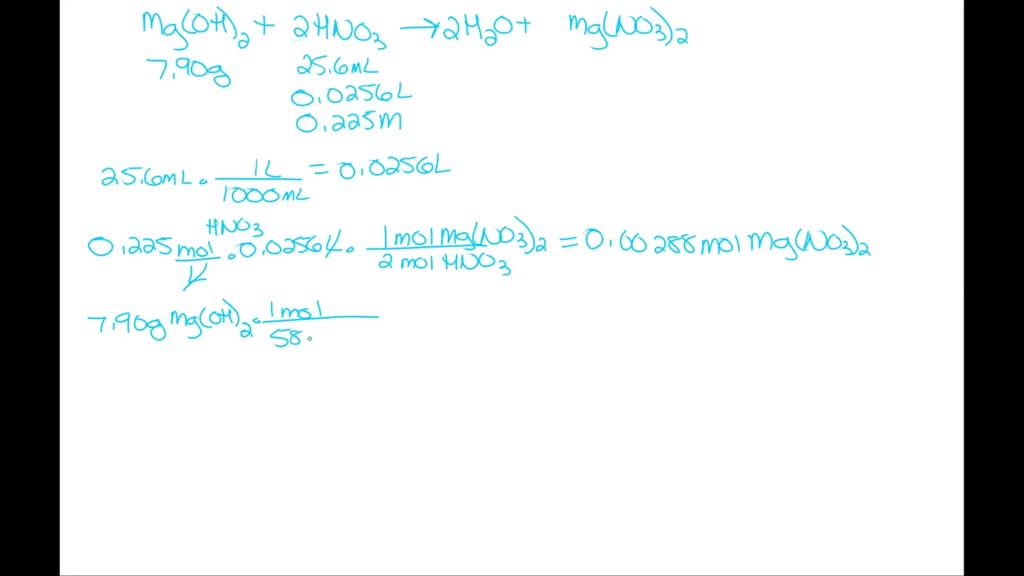 Mg(OH)₂ + 2HNO₃ → 2H₂O + Mg(NO₃)₂
7.90g 25.6mL
0.0256L
0.225M
25.6mL · 1L / 1000mL = 0.0256L
0.225 mol HNO₃ / L · 0.0256L · 1mol Mg(NO₃)₂ / 2 mol HNO₃ = 0.00288mol Mg(NO₃)₂
7.90g Mg(OH)₂ · 1mol / 58.